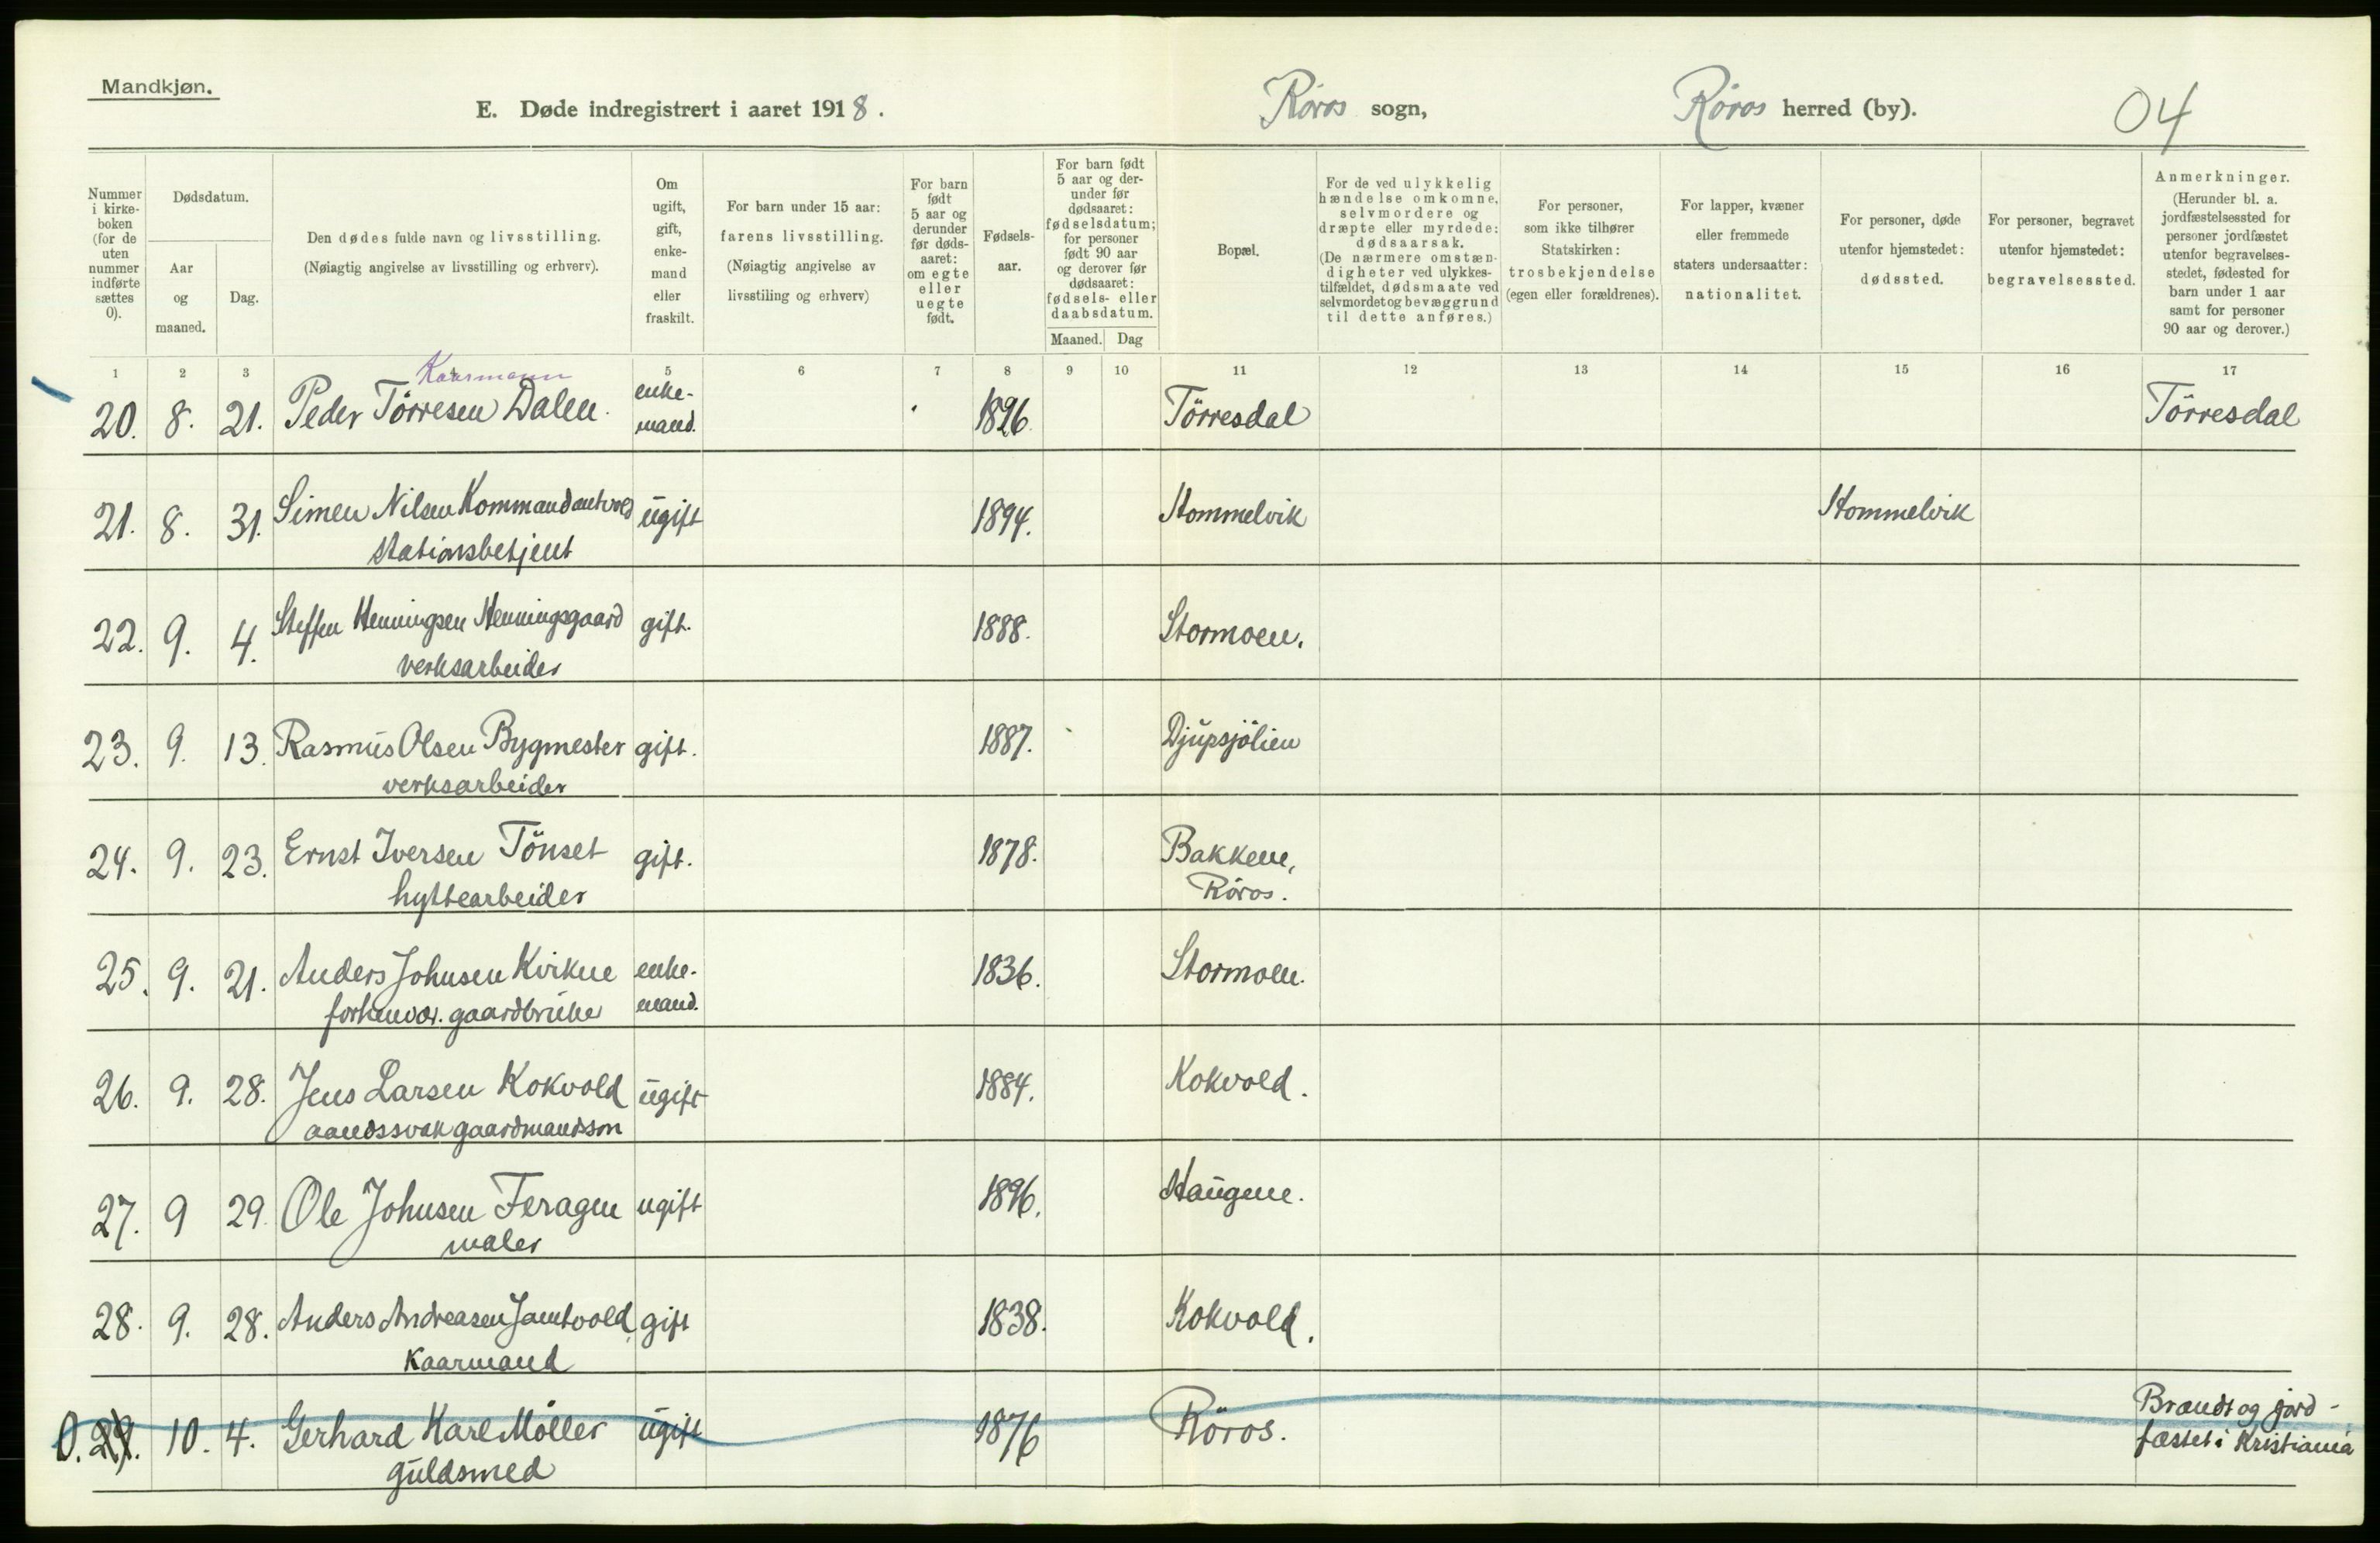 Mandkjøn.
E. Døde indregistrert i aaret 1918.
Röros sogn,
Röros herred (by).
04
Nummer i kirke-boken (for de uten nummer indførte sættes 0).
Dødsdatum.
Aar og maaned.
Dag.
Den dødes fulde navn og livsstilling. (Nøiagtig angivelse av livsstilling og erhverv).
Om ugift, gift, enke-mand eller fraskilt.
For barn under 15 aar: farens livsstilling. (Nøiagtig angivelse av livsstiling og erhverv)
For barn født 5 aar og derunder før døds-aaret: om egte eller uegte født.
Fødsels-aar.
For barn født 5 aar og der-under før dødsaaret: fødselsdatum; for personer født 90 aar og derover før dødsaaret: fødsels- eller daabsdatum.
Maaned. Dag
Bopæl.
For de ved ulykkelig hændelse omkomne, selvmordere og dræpte eller myrdede: dødsaarsak. (De nærmere omstæn-digheter ved ulykkes-tilfældet, dødsmaate ved selvmordet og bevæggrund til dette anføres.)
For personer, som ikke tilhører Statskirken: trosbekjendelse (egen eller forældrenes).
For lapper, kvæner eller fremmede staters undersaatter: nationalitet.
For personer, døde utenfor hjemstedet: dødssted.
For personer, begravet utenfor hjemstedet: begravelsessted.
Anmerkninger. (Herunder bl. a. jordfæstelsessted for personer jordfæstet utenfor begravelses-stedet, fødested for barn under 1 aar samt for personer 90 aar og derover.)
1 2 3 4 5 6 7 8 9 10 11 12 13 14 15 16 17
Kaarmann
20. 8. 21. Peder Törresen Dalen. enke-mand. 1826 Törresdal Törresdal
21. 8. 31. Simen Nilsen Kommandantvold ugift 1894. Hommelvik Hommelvik
stationsbetjent
22. 9. 4. Steffen Henningsen Henningsgaard gift. 1888. Stormoen.
verksarbeider
23. 9. 13. Rasmus Olsen Bygmester gift. 1887. Djupsjölien
verksarbeider
24. 9. 23. Ernst Iversen Tönset gift. 1878. Bakkene, Röros.
hyttearbeider
25. 9. 21. Anders Johnsen Kirkne enke-mand. 1836. Stormoen.
forhenvær. gaardbruker
26. 9. 28. Jens Larsen Kokvold ugift 1884. Kokvold.
aandssvak gaardmandssøn
27. 9 29. Ole Johnsen Feragen ugift 1896. Haugene.
maler
28. 9. 28. Anders Andreasen Jamtvold gift 1838. Kokvold.
Kaarmand
0. 29. 10. 4. Gerhard Karl Möller ugift 1876 Röros. Brændt og jord-
guldsmed fæstet i Kristiania